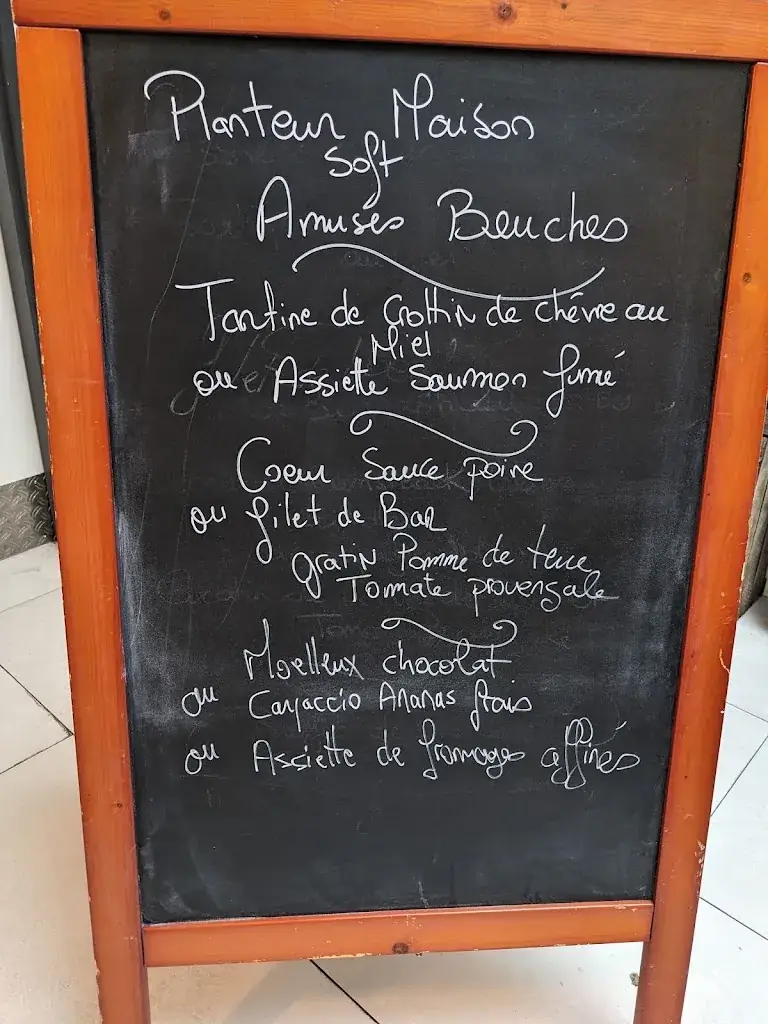 Planteur Maison
Soft
Amuses Beuches
Tartine de Crottin de chévre au
Miel
ou Assiette Saumon fumé
Coeur Sauce poivre
ou filet de Bar
gratin Pomme de terre
Tomate provensale
Moelleux chocolat
ou Carpaccio Ananas frais
ou Assiette de fromages affinés